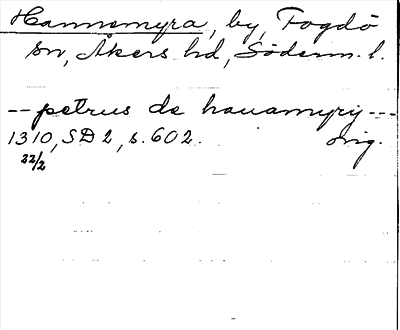 Hannemyra, by, Fogdö
sn, Åkers hd, Söderm. l.
-- petrus de hauamyry ---
1310, SD 2, s. 602. orig.
22/2